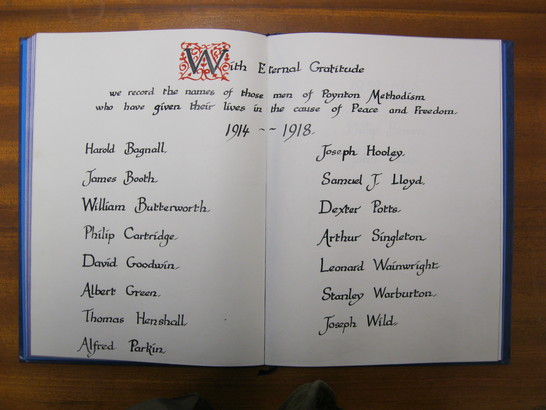 With Eternal Gratitude
we record the names of those men of Poynton Methodism
who have given their lives in the cause of Peace and Freedom.
1914 -- 1918.
Harold Bagnall.
James Booth.
William Butterworth.
Philip Cartridge.
David Goodwin.
Albert Green.
Thomas Henshall.
Alfred Parkin.
Joseph Hooley.
Samuel J. Lloyd.
Dexter Potts.
Arthur Singleton.
Leonard Wainwright.
Stanley Warburton.
Joseph Wild.